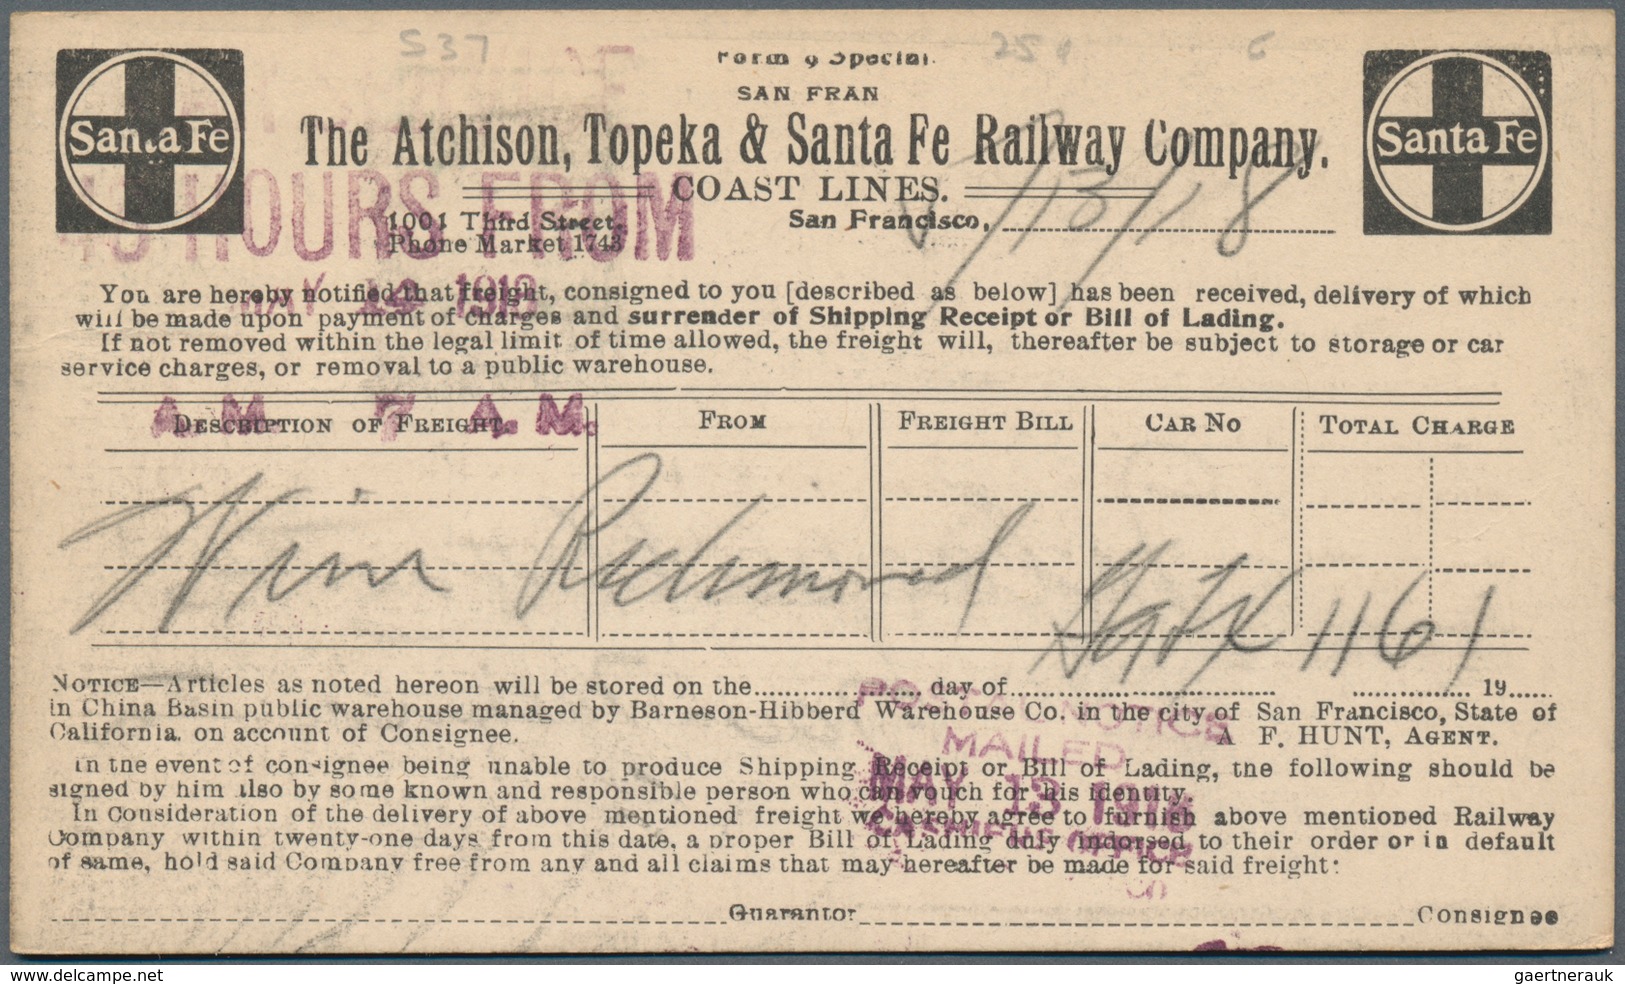 S37 25¢ 6
Form 9 Special.
SAN FRAN
Santa Fe
The Atchison, Topeka & Santa Fe Railway Company.
Santa Fe
COAST LINES.
48 HOURS FROM
1001 Third Street,
Phone Market 1743
San Francisco, 5/13/18
MAY 14 1918
You are hereby notified that freight, consigned to you [described as below] has been received, delivery of which
will be made upon payment of charges and surrender of Shipping Receipt or Bill of Lading.
If not removed within the legal limit of time allowed, the freight will, thereafter be subject to storage or car
service charges, or removal to a public warehouse.
A.M. 7 A.M.
DESCRIPTION OF FREIGHT. FROM FREIGHT BILL CAR NO TOTAL CHARGE
Wine Richmond 1161
NOTICE—Articles as noted hereon will be stored on the........ day of........ 19......
in China Basin public warehouse managed by Barneson-Hibberd Warehouse Co. in the city of San Francisco, State of
California. on account of Consignee. A F. HUNT, AGENT.
POSTAL NOTICE
MAILED
MAY 13 1918
CASHIERS OFFICE
In the event of consignee being unable to produce Shipping Receipt or Bill of Lading, the following should be
signed by him also by some known and responsible person who can vouch for his identity.
In Consideration of the delivery of above mentioned freight we hereby agree to furnish above mentioned Railway
Company within twenty-one days from this date, a proper Bill of Lading duly indorsed to their order or in default
of same, hold said Company free from any and all claims that may hereafter be made for said freight:
Guarantor Consignee
www.delcampe.net
gaertnerauk